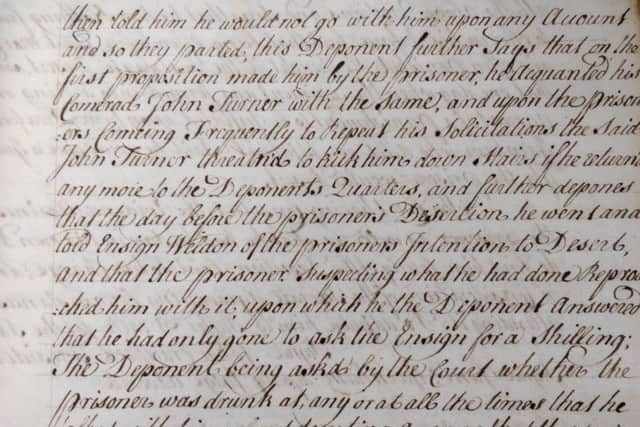 then told him he would not go with him upon any Account
and so they parted, this Deponent further Says that on the
first proposition made him by the prisoner, he Acquanted his
Comrad John Turner with the same, and upon the prison
=ers Comeing Frequently to Repeat his Solicitations the said
John Turner threatn'd to kick him down Stairs if he return'd
any more to the Deponents Quarters, and further depones
that the day before the prisoners Desertion he went and
told Ensign Weldon of the prisoners Intention to Desert,
and that the prisoner Suspecting what he had done Reproa
=ched him with it, upon which he the Deponent Answered
that he had only gone to ask the Ensign for a Shilling;
The Deponent being askd by the Court whether the
prisoner was drunk at, any or at all the times that he